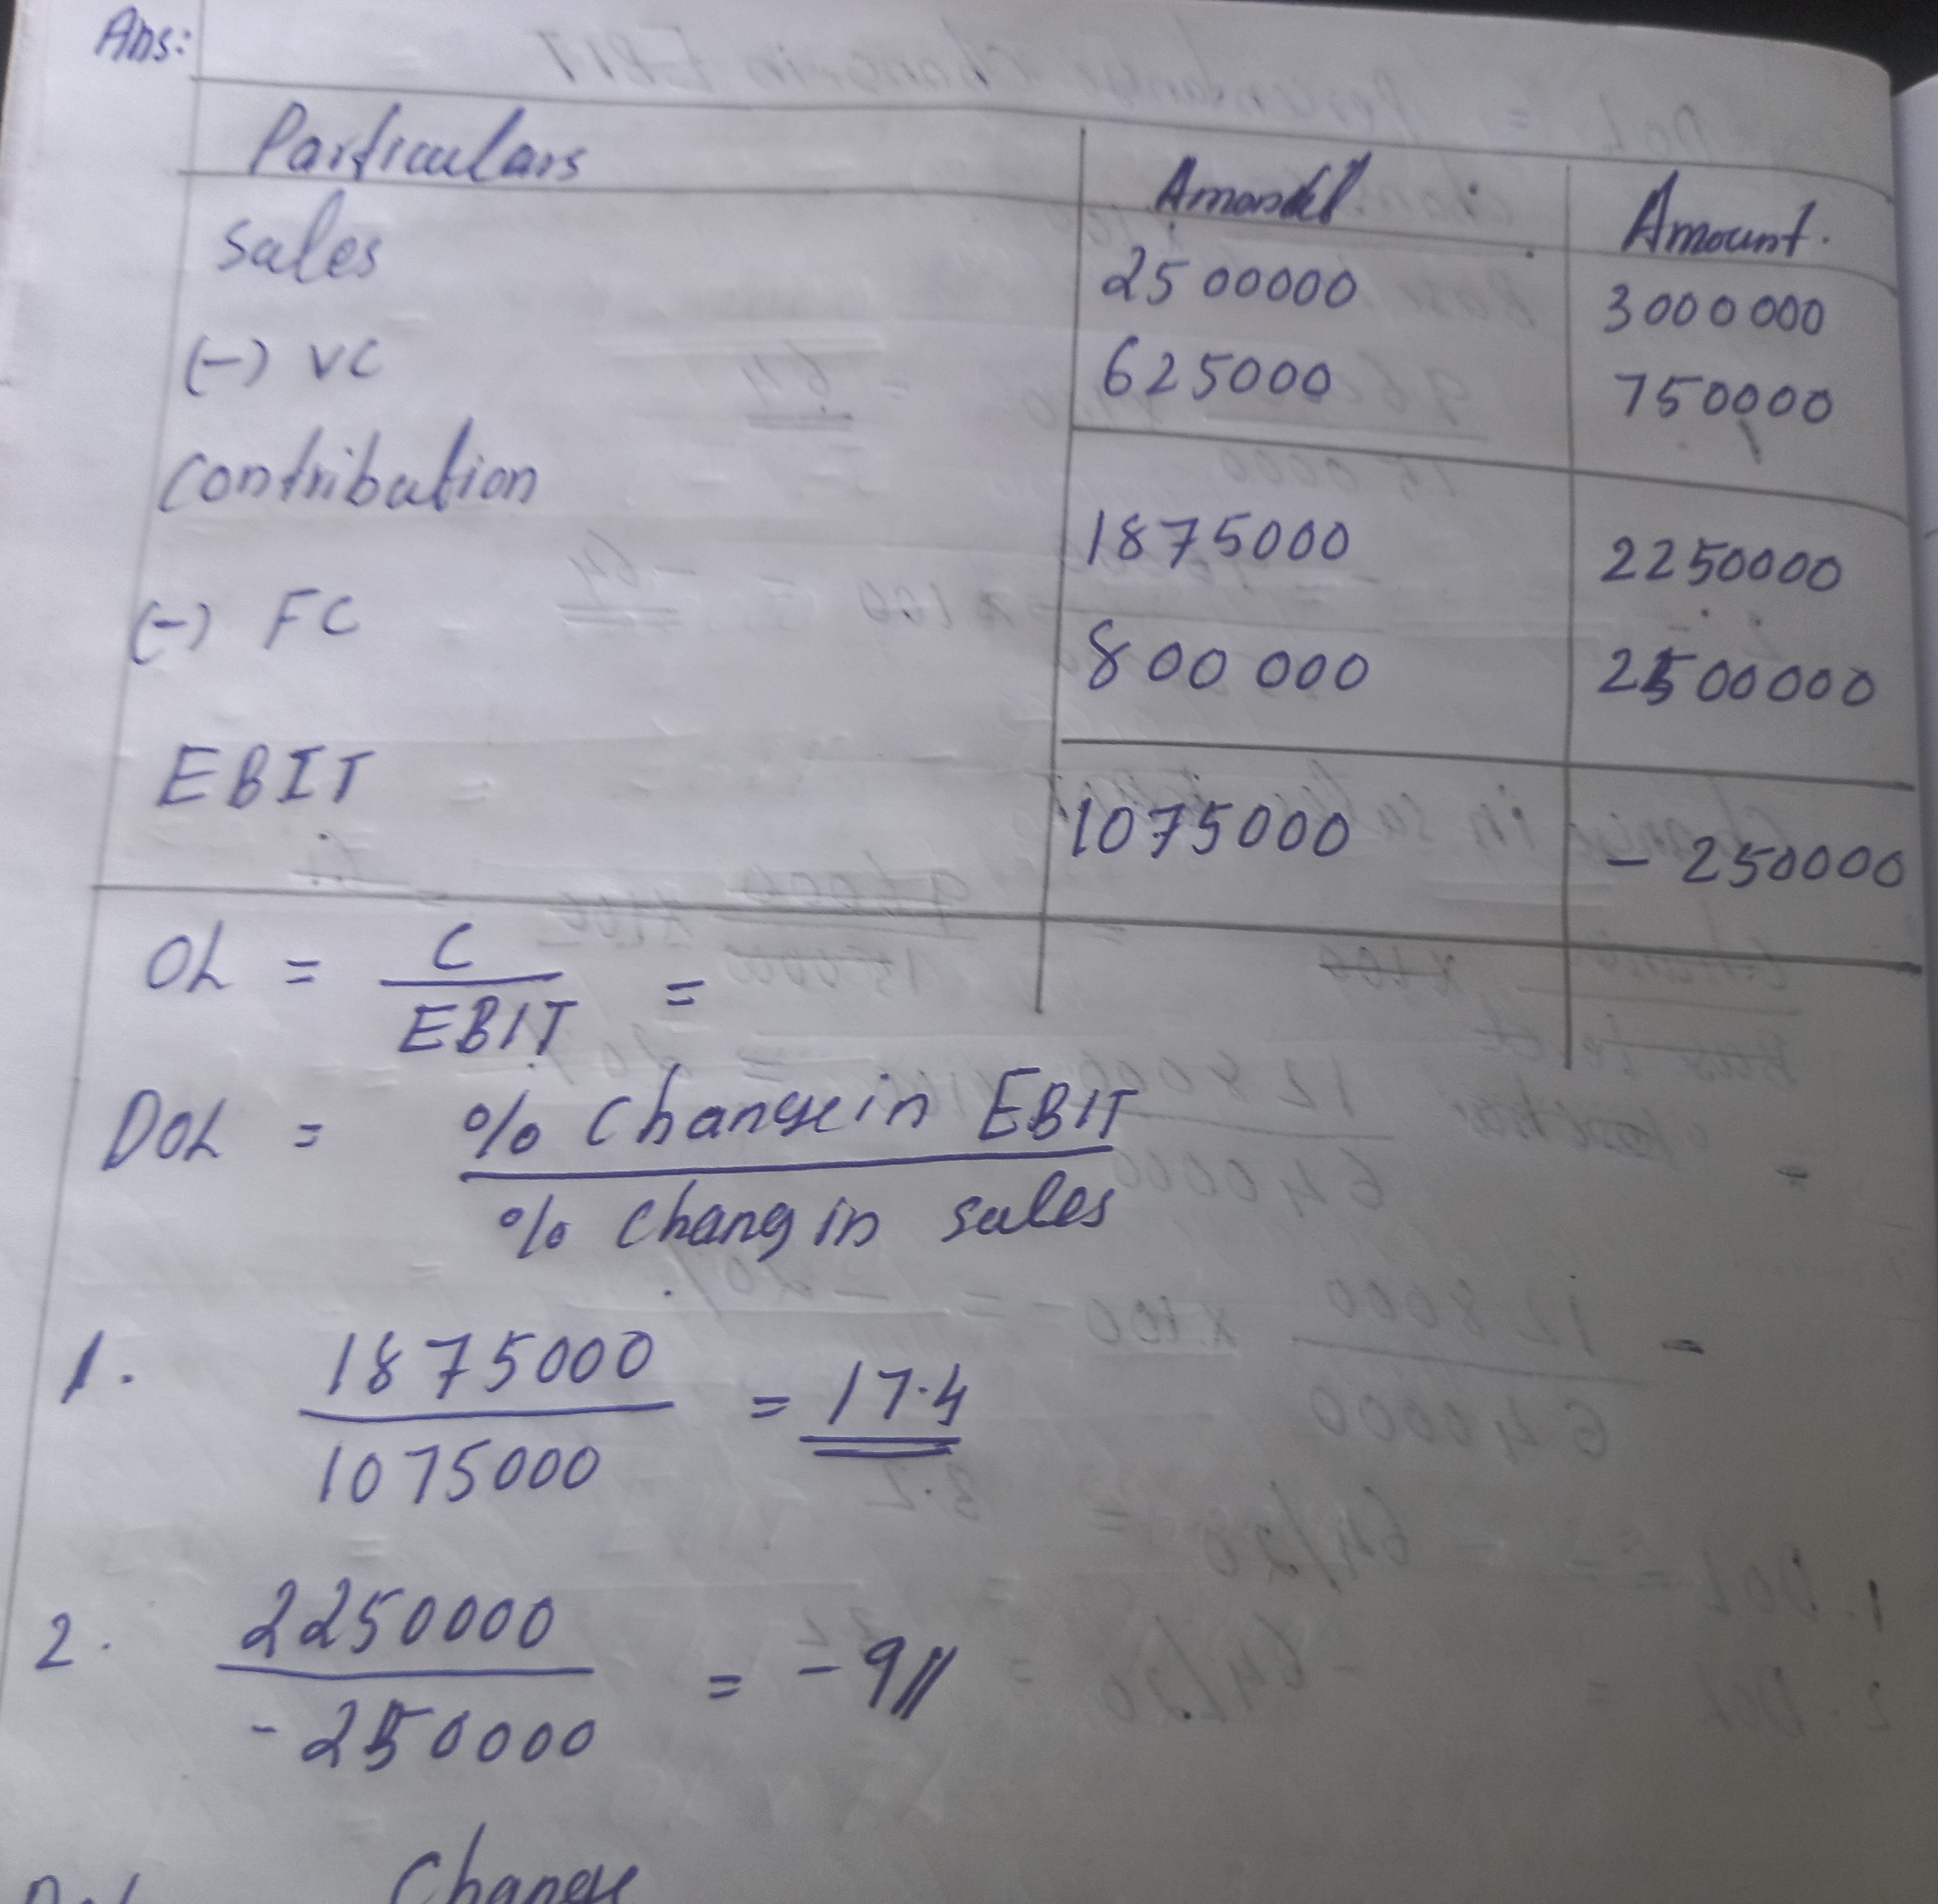 Ans:
Particulars Amount Amount.
Sales 2500000 3000000
(-) VC 625000 750000
Contribution 1875000 2250000
(-) FC 800 000 2500000
EBIT 1075000 - 250000
OL = C / EBIT =
DOL = % Change in EBIT / % Chang in sales
1. 1875000 / 1075000 = 17.4
2. 2250000 / -250000 = -9//
Change